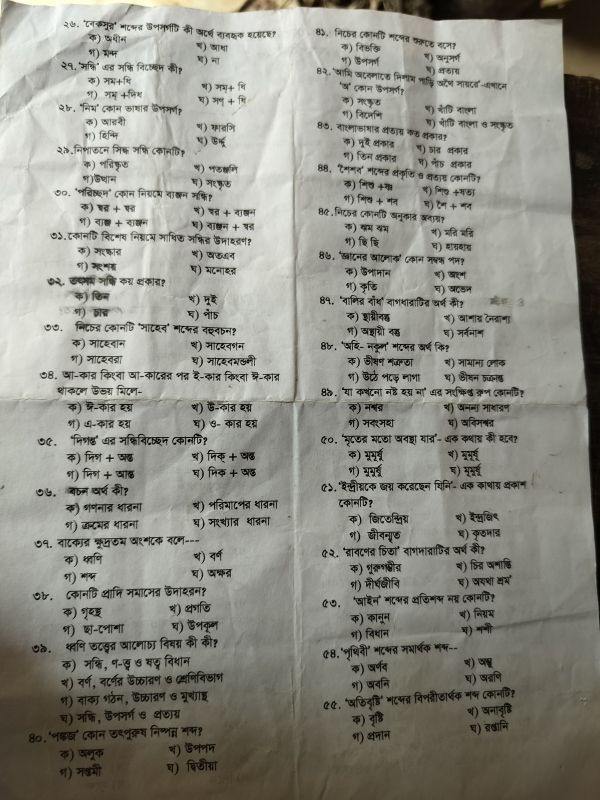 ২৬. 'বেকসুর' শব্দের উপসর্গটি কী অর্থে ব্যবহৃত হয়েছে?
ক) অধীন খ) আধা
গ) মন্দ ঘ) না
২৭. 'সন্ধি' এর সন্ধি বিচ্ছেদ কী?
ক) সম+ধি খ) সম্+ ধি
গ) সম্ +দিধ ঘ) সণ্ + ধি
২৮. 'নিম' কোন ভাষার উপসর্গ?
ক) আরবী খ) ফারসি
গ) হিন্দি ঘ) উর্দ্দু
২৯.নিপাতনে সিদ্ধ সন্ধি কোনটি?
ক) পরিষ্কৃত খ) পতঞ্জলি
গ)উত্থান ঘ) সংস্কৃত
৩০. 'পরিচ্ছদ' কোন নিয়মে ব্যঞ্জন সন্ধি?
ক) স্বর + স্বর খ) স্বর + ব্যঞ্জন
গ) ব্যঞ্জ + ব্যঞ্জন ঘ) ব্যঞ্জন + স্বর
৩১.কোনটি বিশেষ নিয়মে সাধিত সন্ধির উদাহরণ?
ক) সংস্কার খ) অতএব
গ) সংশয় ঘ) মনোহর
৩২. তৎসম সন্ধি কয় প্রকার?
ক) তিন খ) দুই
গ) চার ঘ) পাঁচ
৩৩. নিচের কোনটি 'সাহেব' শব্দের বহুবচন?
ক) সাহেবান খ) সাহেবগন
গ) সাহেবরা ঘ) সাহেবমন্ডলী
৩৪. আ-কার কিংবা আ-কারের পর ই-কার কিংবা ঈ-কার
থাকলে উভয় মিলে-
ক) ঈ-কার হয় খ) উ-কার হয়
গ) এ-কার হয় ঘ) ও- কার হয়
৩৫. 'দিগন্ত' এর সন্ধিবিচ্ছেদ কোনটি?
ক) দিগ + অন্ত খ) দিক্ + অন্ত
গ) দিগ + আন্ত ঘ) দিক + অন্ত
৩৬. বচন অর্থ কী?
ক) গণনার ধারনা খ) পরিমাপের ধারনা
গ) ক্রমের ধারনা ঘ) সংখ্যার ধারনা
৩৭. বাক্যের ক্ষুদ্রতম অংশকে বলে---
ক) ধ্বণি খ) বর্ণ
গ) শব্দ ঘ) অক্ষর
৩৮. কোনটি প্রাদি সমাসের উদাহরন?
ক) গৃহস্থ খ) প্রগতি
গ) ছা-পোশা ঘ) উপকূল
৩৯. ধ্বণি তত্ত্বের আলোচ্য বিষয় কী কী?
ক) সন্ধি, ণ-ত্ব ও ষত্ব বিধান
খ) বর্ণ, বর্ণের উচ্চারণ ও শ্রেণিবিভাগ
গ) বাক্য গঠন, উচ্চারণ ও মুখ্যাস্থ
ঘ) সন্ধি, উপসর্গ ও প্রত্যয়
৪০.'পঙ্কজ' কোন তৎপুরুষ নিষ্পন্ন শব্দ?
ক) অলুক খ) উপপদ
গ) সপ্তমী ঘ) দ্বিতীয়া
৪১. নিচের কোনটি শব্দের শুরুতে বসে?
ক) বিভক্তি খ) অনুসর্গ
গ) উপসর্গ ঘ) প্রত্যয়
৪২.'আমি অবেলাতে দিলাম পাড়ি অথৈ সায়রে'-এখানে
'অ' কোন উপসর্গ?
ক) সংস্কৃত খ) খাঁটি বাংলা
গ) বিদেশি ঘ) খাঁটি বাংলা ও সংস্কৃত
৪৩. বাংলাভাষার প্রত্যয় কত প্রকার?
ক) দুই প্রকার খ) চার প্রকার
গ) তিন প্রকার ঘ) পাঁচ প্রকার
৪৪. 'শৈশব' শব্দের প্রকৃতি ও প্রত্যয় কোনটি?
ক) শিশু +ষ্ণ খ) শিশু +ষত্য
গ) শিশু + শব ঘ) শৈ + শব
৪৫.নিচের কোনটি অনুকার অব্যয়?
ক) ঝম ঝম খ) মরি মরি
গ) ছি ছি ঘ) হায়হায়
৪৬. 'জ্ঞানের আলোক' কোন সম্বন্ধ পদ?
ক) উপাদান খ) অংশ
গ) কৃতি ঘ) অভেদ
৪৭. 'বালির বাঁধ' বাগধারাটির অর্থ কী?
ক) স্থায়ীবস্তু খ) আশায় নৈরাশ্য
গ) অস্থায়ী বস্তু ঘ) সর্বনাশ
৪৮. 'অহি- নকুল' শব্দের অর্থ কি?
ক) ভীষণ শত্রুতা খ) সামান্য লোক
গ) উঠে পড়ে লাগা ঘ) ভীষন চক্রান্ত
৪৯. 'যা কখনো নষ্ট হয় না' এর সংক্ষিপ্ত রুপ কোনটি?
ক) নশ্বর খ) অনন্য সাধারণ
গ) সবংসহা ঘ) অবিনশ্বর
৫০. 'মৃতের মতো অবস্থা যার'- এক কথায় কী হবে?
ক) খ)
গ) ঘ)
৫১.'ইন্দ্রীয়কে জয় করেছেন যিনি'- এক কাথায় প্রকাশ
কোনটি?
ক) জিতেন্দ্রিয় খ) ইন্দ্রজিৎ
গ) জীবন্মৃত ঘ) কৃতদার
৫২. 'রাবণের চিতা' বাগদারাটির অর্থ কী?
ক) গুরুগম্ভীর খ) চির অশান্তি
গ) দীর্ঘজীবি ঘ) অযথা শ্রম'
৫৩. 'আইন' শব্দের প্রতিশব্দ নয় কোনটি?
ক) কানুন খ) নিয়ম
গ) বিধান ঘ) শশী
৫৪.'পৃথিবী' শব্দের সমার্থক শব্দ--
ক) অর্ণব খ) অম্বু
গ) অবনি ঘ) অরণি
৫৫. 'অতিবৃষ্টি' শব্দের বিপরীতার্থক শব্দ কোনটি?
ক) বৃষ্টি খ) অনাবৃষ্টি
গ) প্রদান ঘ) রপ্তানি